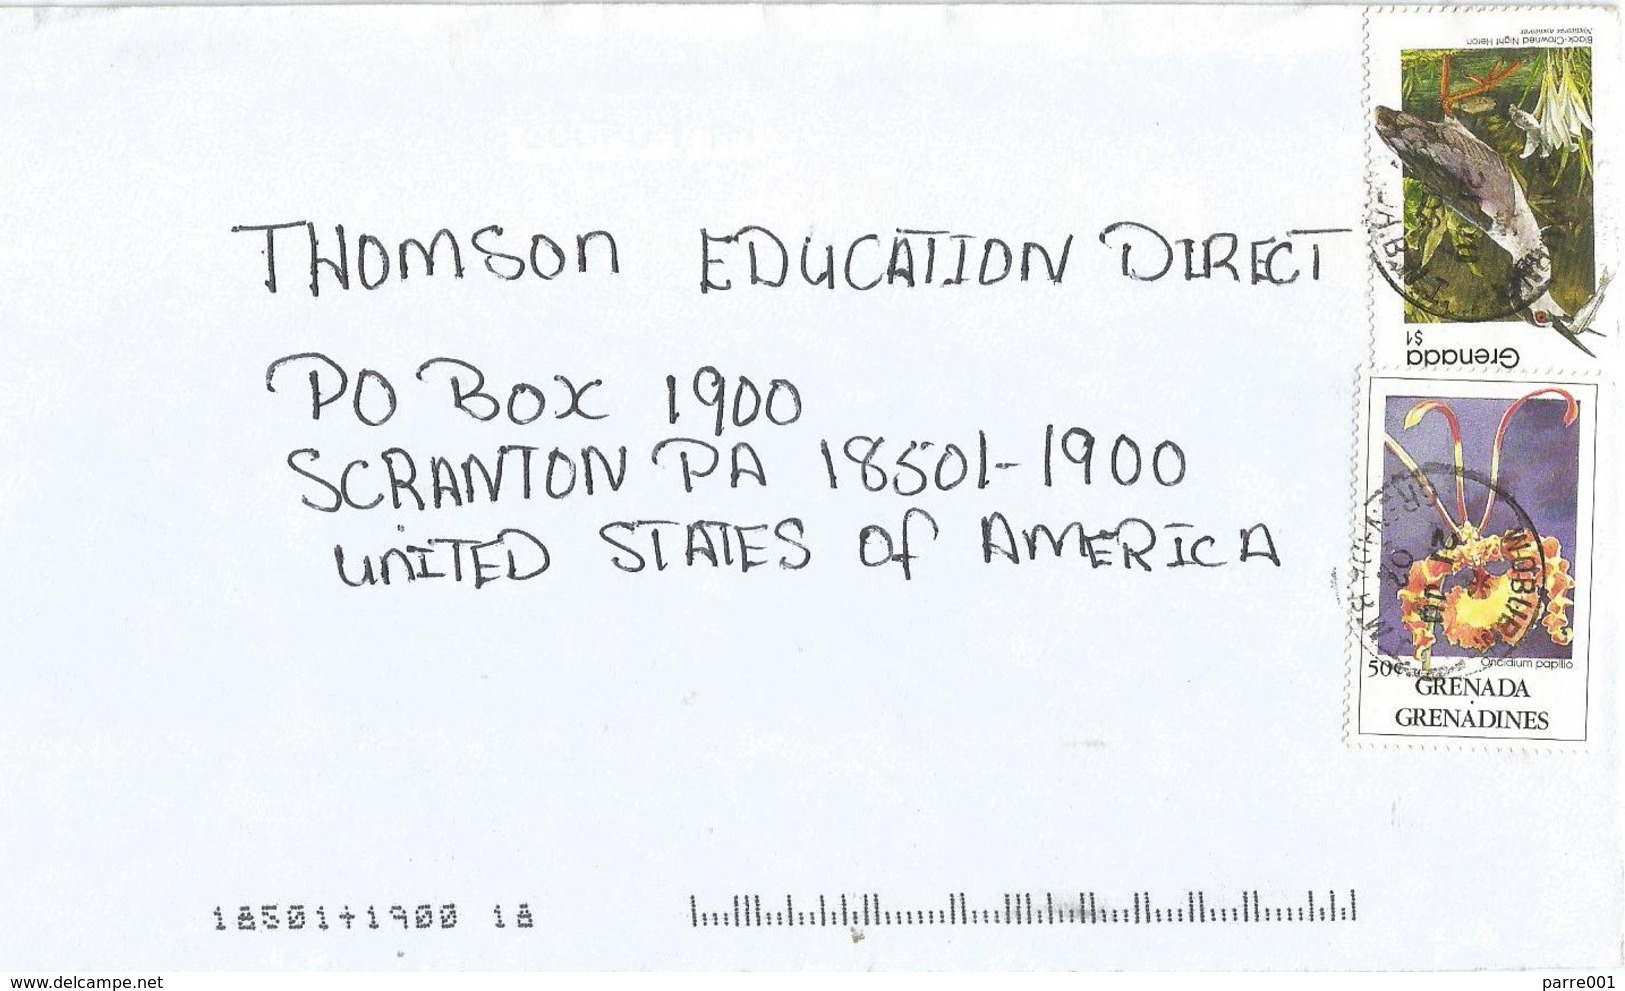 THOMSON EDUCATION DIRECT
PO BOX 1900
SCRANTON PA 18501-1900
UNITED STATES OF AMERICA
Black-Crowned Night Heron
Nycticorax nycticorax
$1
Grenada
Oncidium papilio
50¢
GRENADA
GRENADINES
18501+1900 18
www.delcampe.net
parre001